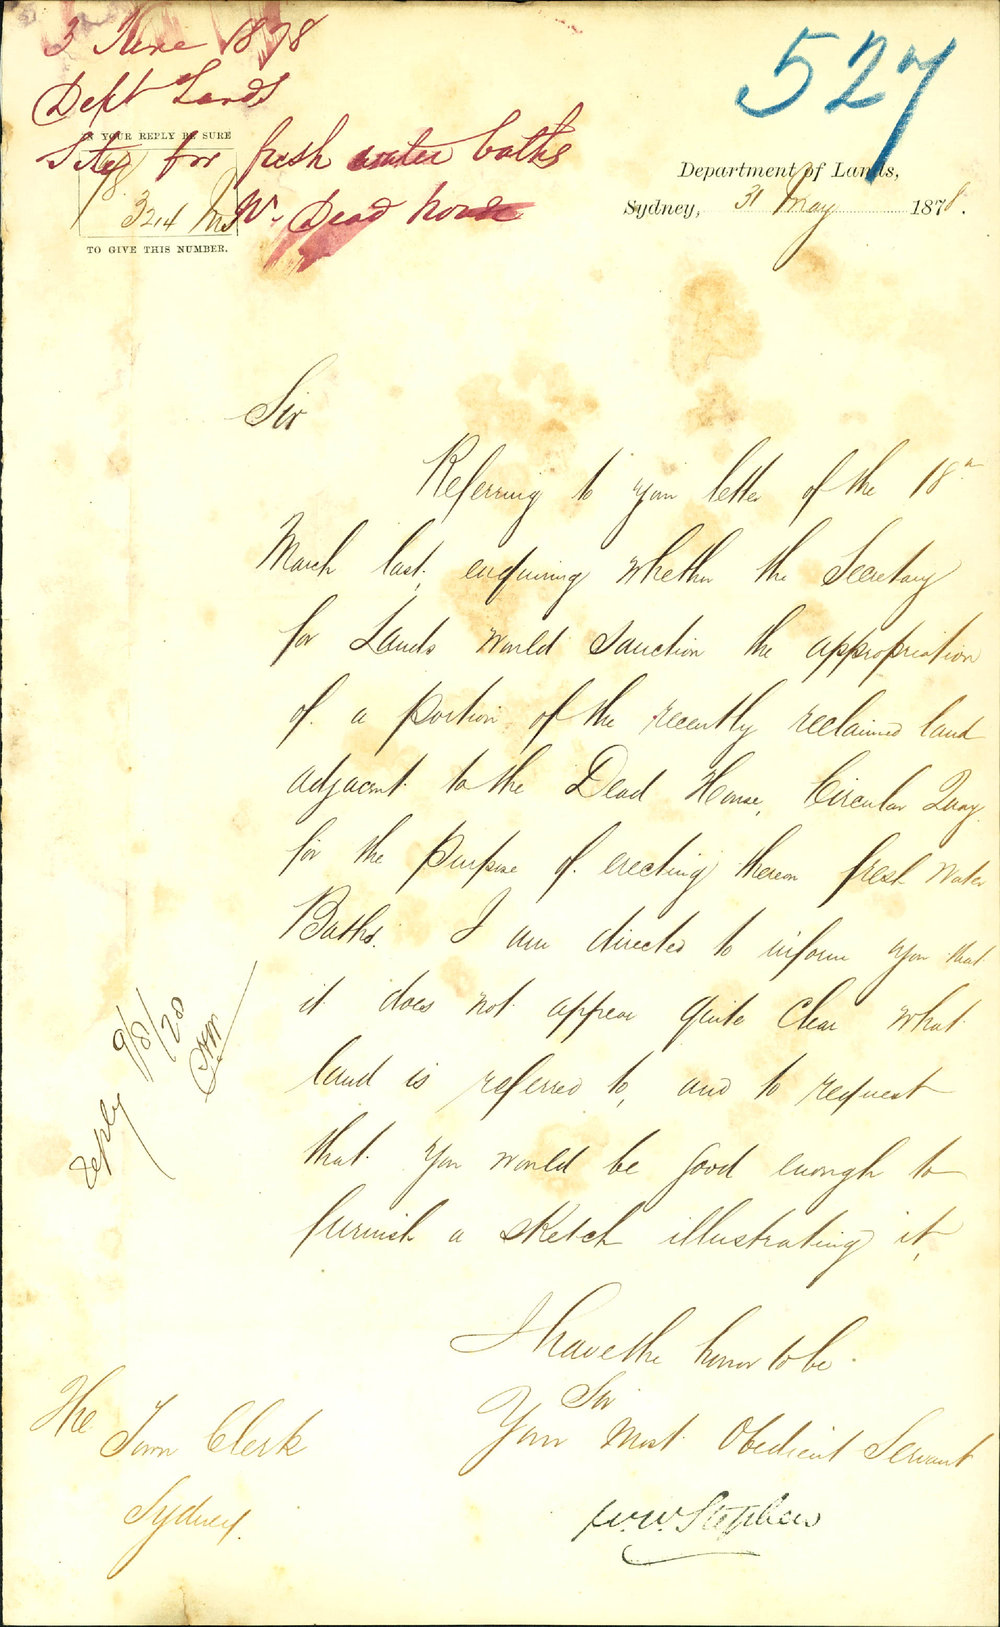 3 June 1878
Dept Lands
IN YOUR REPLY BE SURE
Site for fresh water baths
Nr. Dead house
78
3214
TO GIVE THIS NUMBER.
527
Department of Lands,
Sydney, 31 May 1878.
Sir
Referring to your letter of the 18th
March last, enquiring whether the Secretary
for Lands would sanction the appropriation
of a portion of the recently reclaimed land
adjacent to the Dead House, Circular Quay
for the purpose of erecting thereon fresh water
Baths. I am directed to inform you that
it does not appear quite clear what
land is referred to, and to request
that you would be good enough to
furnish a sketch illustrating it,
reply
I have the honor to be
Sir
Your Most Obedient Servant
W.W. Stephen
The
Town Clerk
Sydney.